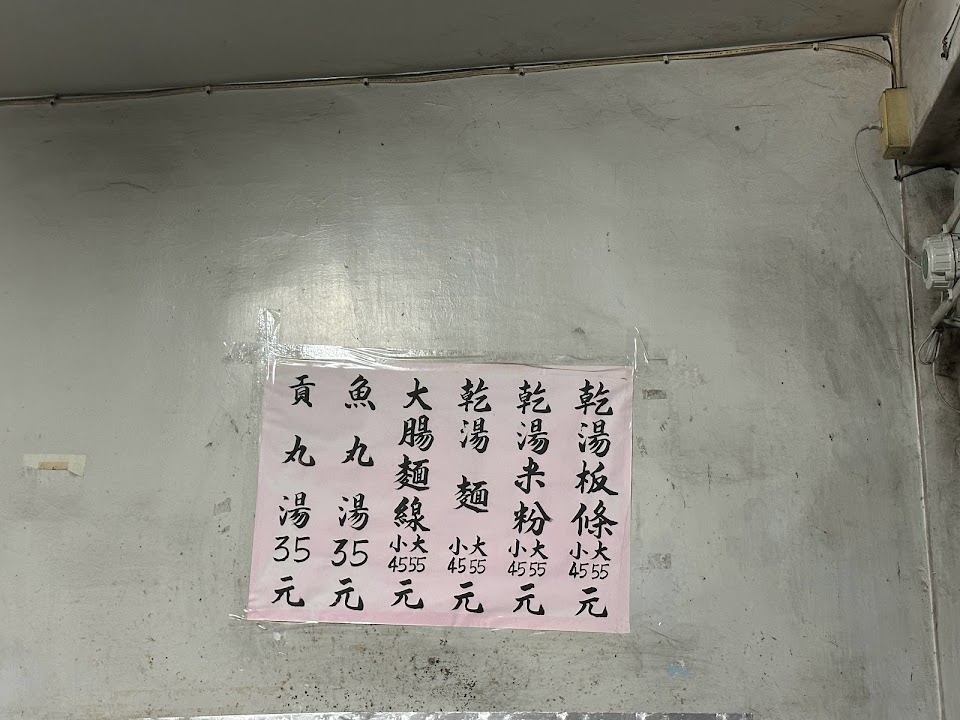 乾湯板條小45大55元
乾湯米粉小45大55元
乾湯麵小45大55元
大腸麵線小45大55元
魚丸湯35元
貢丸湯35元